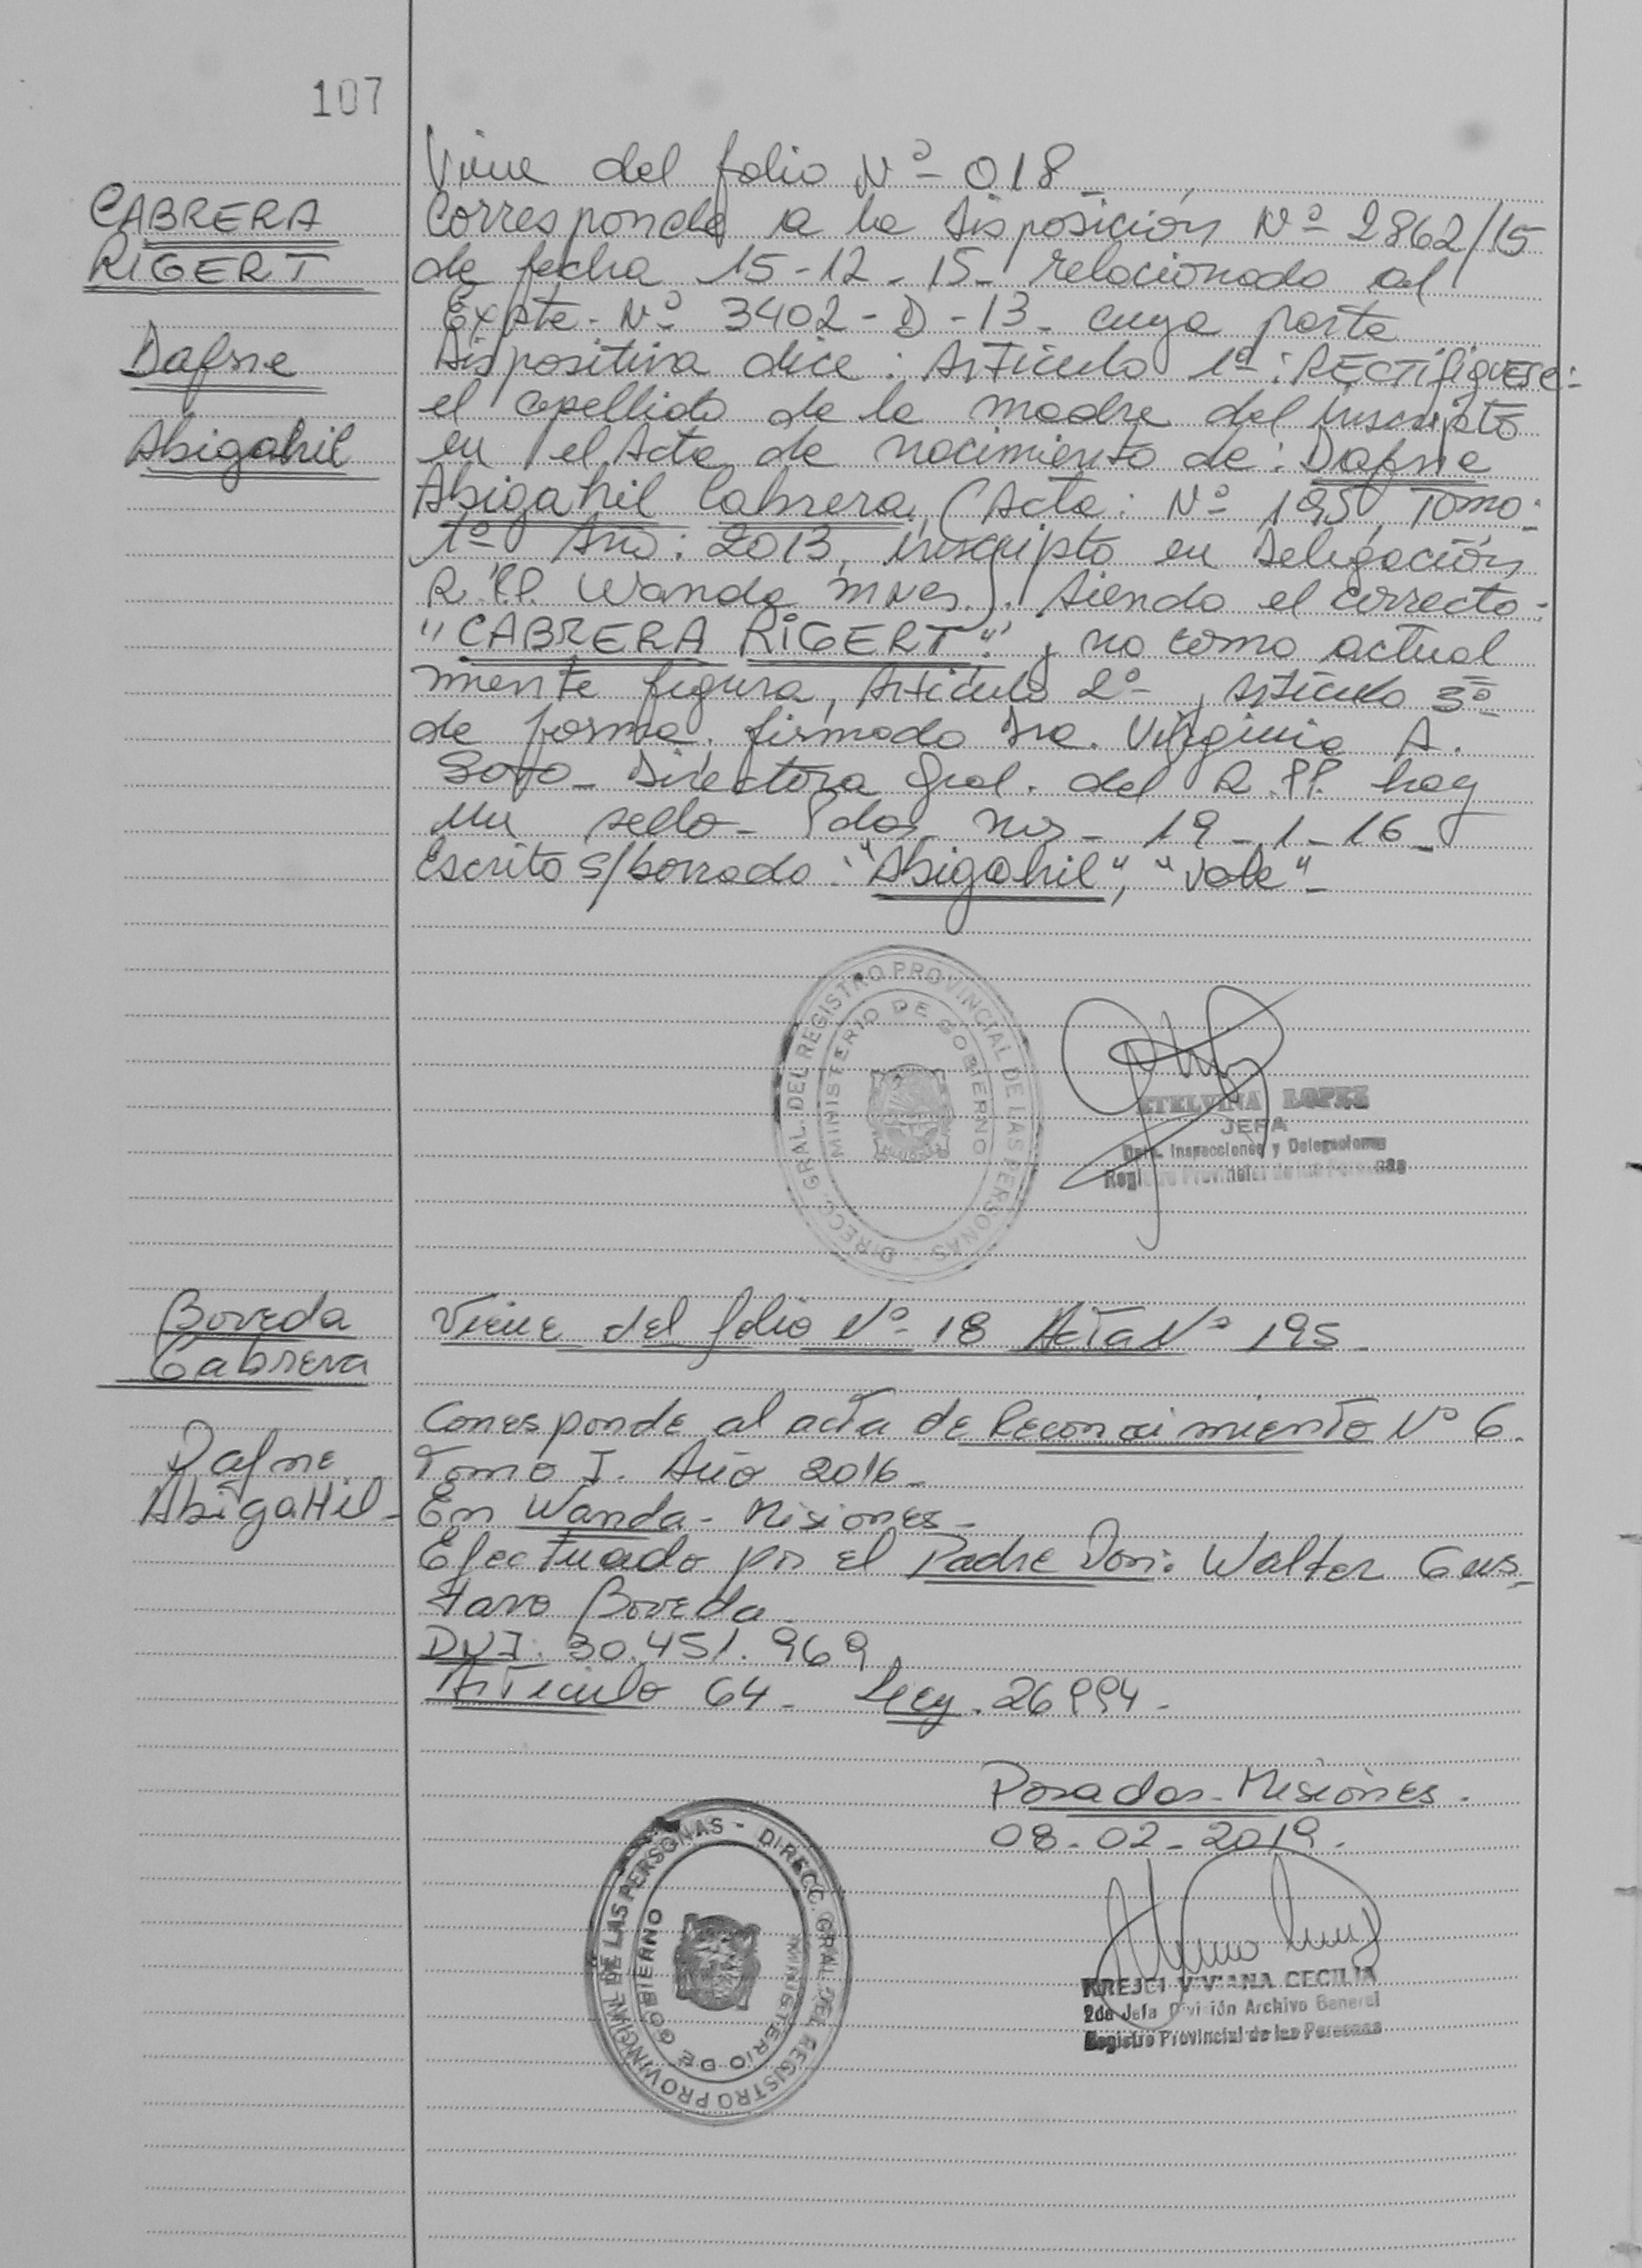 107
Viene del folio Nº 018
CABRERA
RIGERT
Dafne
Abigahil
Corresponde a la Disposición Nº 2862/15
de fecha 15-12-15- relacionado al
Expte- Nº 3402-D-13- cuya parte
Dispositiva dice: Artículo 1º: RECTifiquese:
el apellido de la madre del inscripto
en el Acta de nacimiento de: Dafne
Abigahil Cabrera, (Acta: Nº 195, Tomo:
1º Año: 2013, inscripto en Delegación
R.PP. Wanda mnes.). Siendo el correcto:
"CABRERA RIGERT" y no como actual
mente figura, Artículo 2º, Artículo 3º
de forma. firmado Dra. Virginia A.
Directora Gral. del R.PP. hay
un sello- Pdas- mns- 19-1-16-
Escrito s/borrado: "Abigahil", "vale"-
DIRECC. GRAL. DEL REGISTRO PROVINCIAL DE LAS PERSONAS -
MINISTERIO DE GOBIERNO
ETELVINA LOPEZ
JEFA
Dpto. Inspecciones y Delegaciones
Registro Provincial de las Personas
Boveda
Cabrera
Dafne
AbigaHil-
Viene del folio Nº 18 Acta Nº 195-
Corresponde al acta de Reconocimiento Nº 6.
Tomo I. Año 2016-
En Wanda- Misiones-
Efectuado por el Padre Don: Walter Gus-
tavo Boveda-
DNI: 30.451.969
Artículo 64- Ley. 26994-
Posadas- Misiones-
08-02-2019.
DIRECC. GRAL. DEL REGISTRO PROVINCIAL DE LAS PERSONAS -
MINISTERIO DE GOBIERNO
KREJCI VIVIANA CECILIA
2da Jefa División Archivo General
Registro Provincial de las Personas